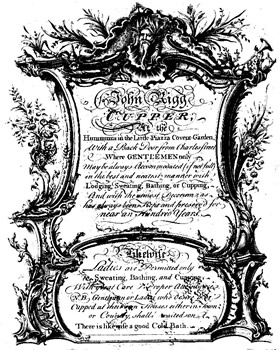 John Rigg
CUPPER,
At the
Hummums in the Little Piazza Covent Garden,
With a Back Door from Charles street
Where GENTLEMEN only
May be always Accommodated (if not full)
in the best and neatest manner with
Lodging, Sweating, Bathing, or Cupping,
And with the utmost Decorum as
has always been Kept and preserv'd for
near an Hundred Years.
Likewise
Ladies are Permitted only
Sweating, Bathing, and Cupping
With great Care & Proper Attendance
N.B. Gentlemen or Ladies who desire to be
Cupped at their own Houses either in Town
or Country, shall be waited on
There is likewise a good Cold Bath.